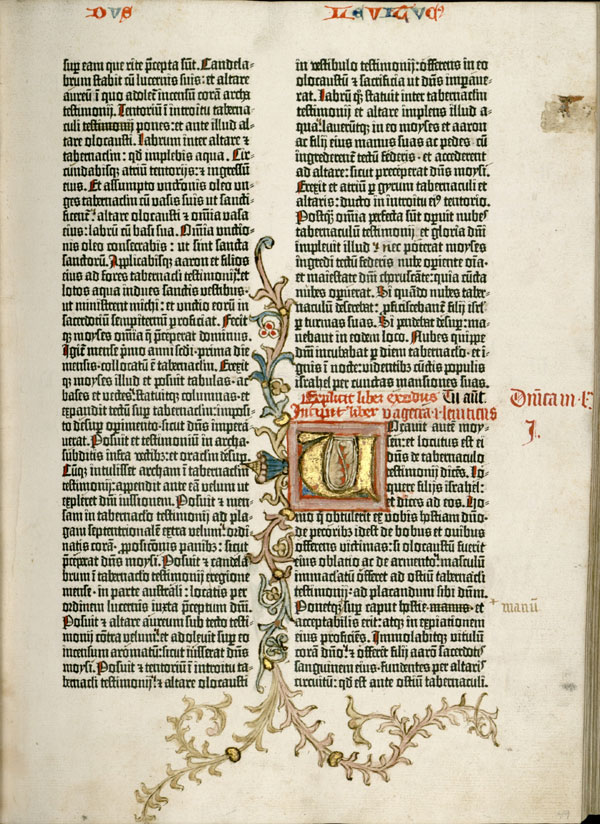 DVS
LEVITICVS
sup eam que rite p̄cepta sūt. Candela-
brum stabit cū lucernis suis: et altare
aureū ī quo adolet̄ incensū corā archa
testimonij. Tentoriū ī introitu taberna-
culi testimonij pones: et ante illud al-
tare olocausti. Labrum inter altare ⁊
tabernaclm: qd implebis aqua. Cir-
cundabisq; atriū tentorijs: ⁊ ingressū
eius. Et assumpto unctionis oleo un-
ges tabernaclm cū vasis suis ut sancti-
ficent: altare olocausti ⁊ om̄ia vasa
eius: labrū cū basi sua. Om̄ia unctio-
nis oleo consecrabis: ut sint sancta
sanctorū. Applicabisq; aaron et filios
eius ad fores tabernacli testimonij: et
lotos aqua indues sanctis vestibus·
ut ministrent michi: et unctio eorū in
sacerdotiū sempiternū proficiat. Fecit-
q; moyses om̄ia q̄ preceperat dominus.
Igit̄ mense p̄mo anni secūdi prima die
mensis· collocatū ē tabernaclm. Erexit-
q; moyses illud et posuit tabulas· a
bases et vectes: statuitq; columnas· et
expandit tectū sup tabernaclm: imposi-
to desup opimento· sicut dn̄s impera-
uerat. Posuit et testimoniū in archa·
subditis infra vectib;: et oraclm desup.
Cūq; intulisset archam ī tabernaclm
testimonij: appendit ante eā velum ut
expleret dn̄i iussionem. Posuit ⁊ men-
sam in tabernaclo testimonij ad pla-
gam septentrionalē extra velum: or-
dinatis corā· ꝓposic̄onis panib;: sicut
p̄ceperat dn̄s moysi. Posuit ⁊ candela-
brum ī tabernaclo testimonij eregione
mense· in parte australi: locatis per
ordinem lucernis iuxta p̄ceptum dn̄i.
Posuit ⁊ altare aureum sub tecto testi-
monij cōtra velum: et adoleuit sup eo
incensum aromatū: sicut iusserat dn̄s
moysi. Posuit ⁊ tentoriū ī introitu ta-
bernacli testimonij: ⁊ altare olocausti
in vestibulo testimonij: offerens in eo
olocaustū ⁊ sacrificia ut dn̄s impaue-
rat. Labrū q; statuit inter tabernaclm
testimonij et altare implens illud a-
qua: laueruntq; in eo moyses et aaron
ac filij eius manus suas ac pedes· cū
ingrederent̄ tectū federis· et accederent
ad altare: sicut preceperat dn̄s moysi.
Erexit et atriū p gyrum tabernaculi et
altaris: ducto in introitu ei⁹ tentorio.
Postq̄ om̄ia perfecta sūt opuit nubes
tabernaculū testimonij et gloria dn̄i
impleuit illud: nec poterat moyses
ingredi tectū federis nube opiente oīa·
et maiestate dn̄i choruscante: quia cūcta
nubes opuerat. Si quādo nubes taber-
naculū deserebat: pficiscebant̄ filij isrl
p turmas suas. Si pendebat desup: ma-
nebant in eodem loco. Nubes quippe
dn̄i incubabat p diem tabernaclo· et i-
gnis ī nocte: videntib; cūctis populis
israhel per cunctas mansiones suas.
Explicit liber exodus
Incipit liber vagecra ī leuiticus
Cū aūt.
Dn̄ica in
I.
V
Ocauit aute moy-
sen: et locutus est ei
dn̄s de tabernaculo
testimonij dicēs. Lo-
quere filijs israhel:
et dices ad eos. Ho-
mo q̄ obtulerit ex vobis hostiam dn̄o·
de pecorib; id est de bobus et ouibus
offerens victimas: si olocaustū fuerit
eius oblatio ac de armento: masculū
immaclatū offeret ad ostiū tabernacli
testimonij: ad placandum sibi dn̄m.
Ponetq; sup caput hostie manus· et
acceptabilis erit: atq; in expiationem
eius proficiēs. Immolabitq; vitulū
corā dn̄o: ⁊ offerēt filij aarō sacerdotes
sanguinem eius· fundentes per altaris
circuitū: qd est ante ostiū tabernaculi.
+ manū